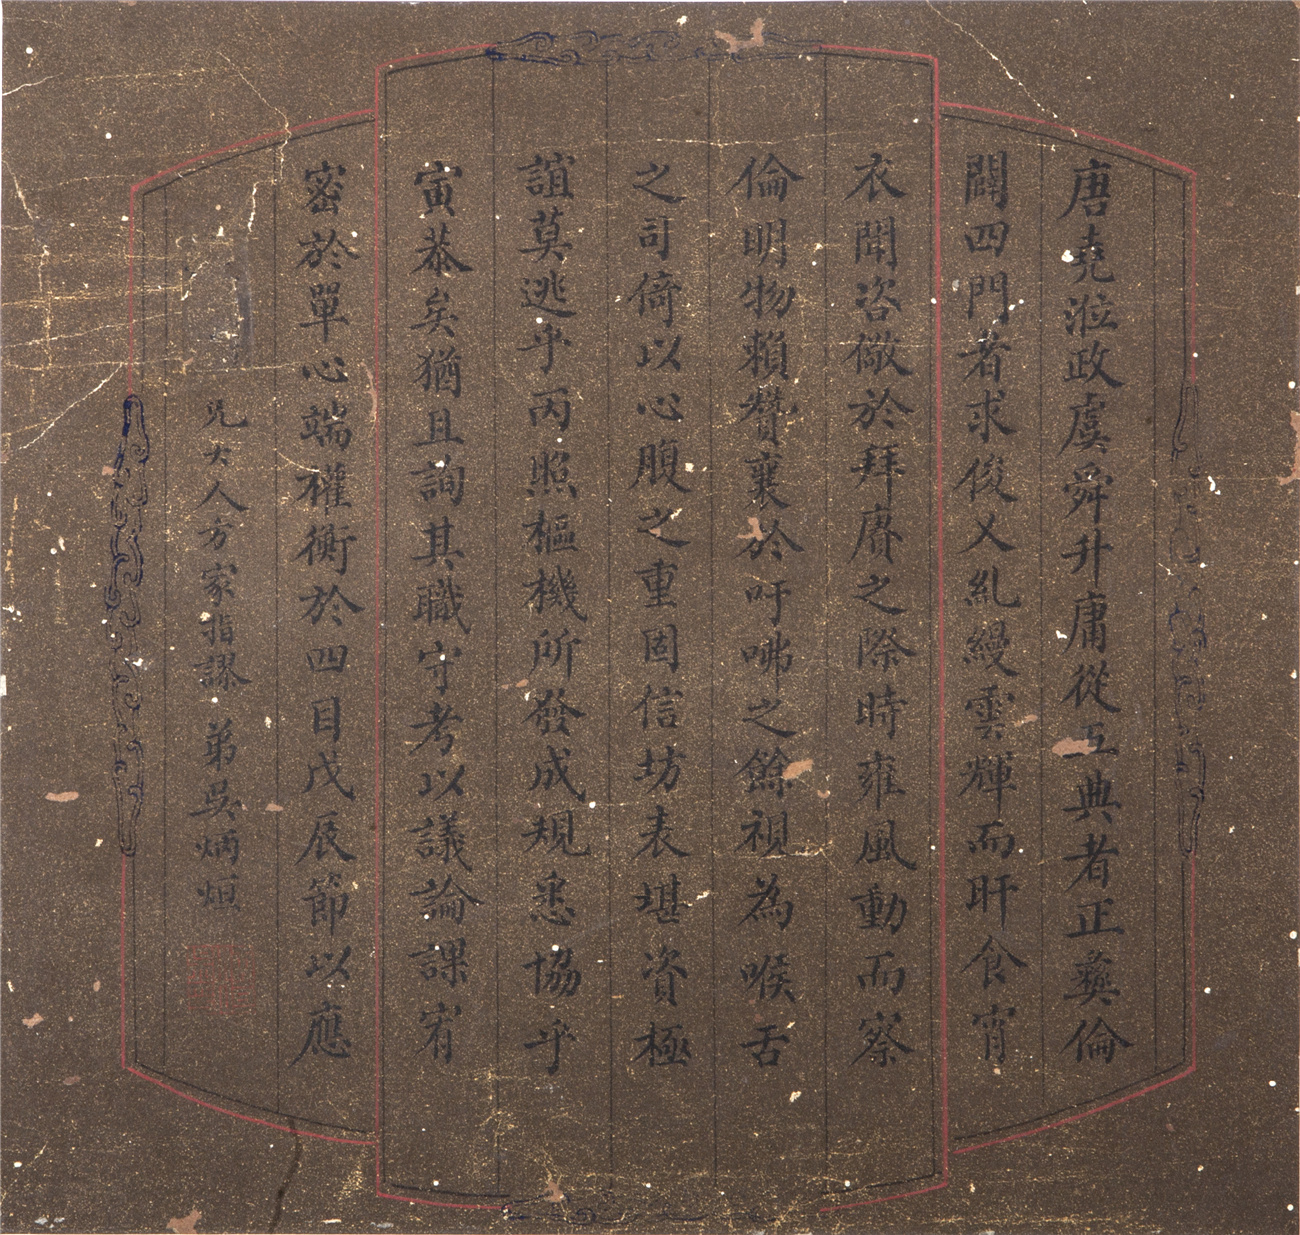 唐堯涖政虞舜升庸從五典者正彝倫
闢四門者求俊乂糺縵雲輝而旰食宵
衣聞咨儆於拜賡之際時雍風動而察
倫明物賴贊襄於吁咈之餘視為喉舌
之司倚以心腹之重固信坊表堪資極
誼莫逃乎丙照樞機所發成規悉協乎
寅恭矣猶且詢其職守考以議論課宥
密於單心端權衡於四目戊辰節以應
兄大人方家指謬 弟吳炳烜